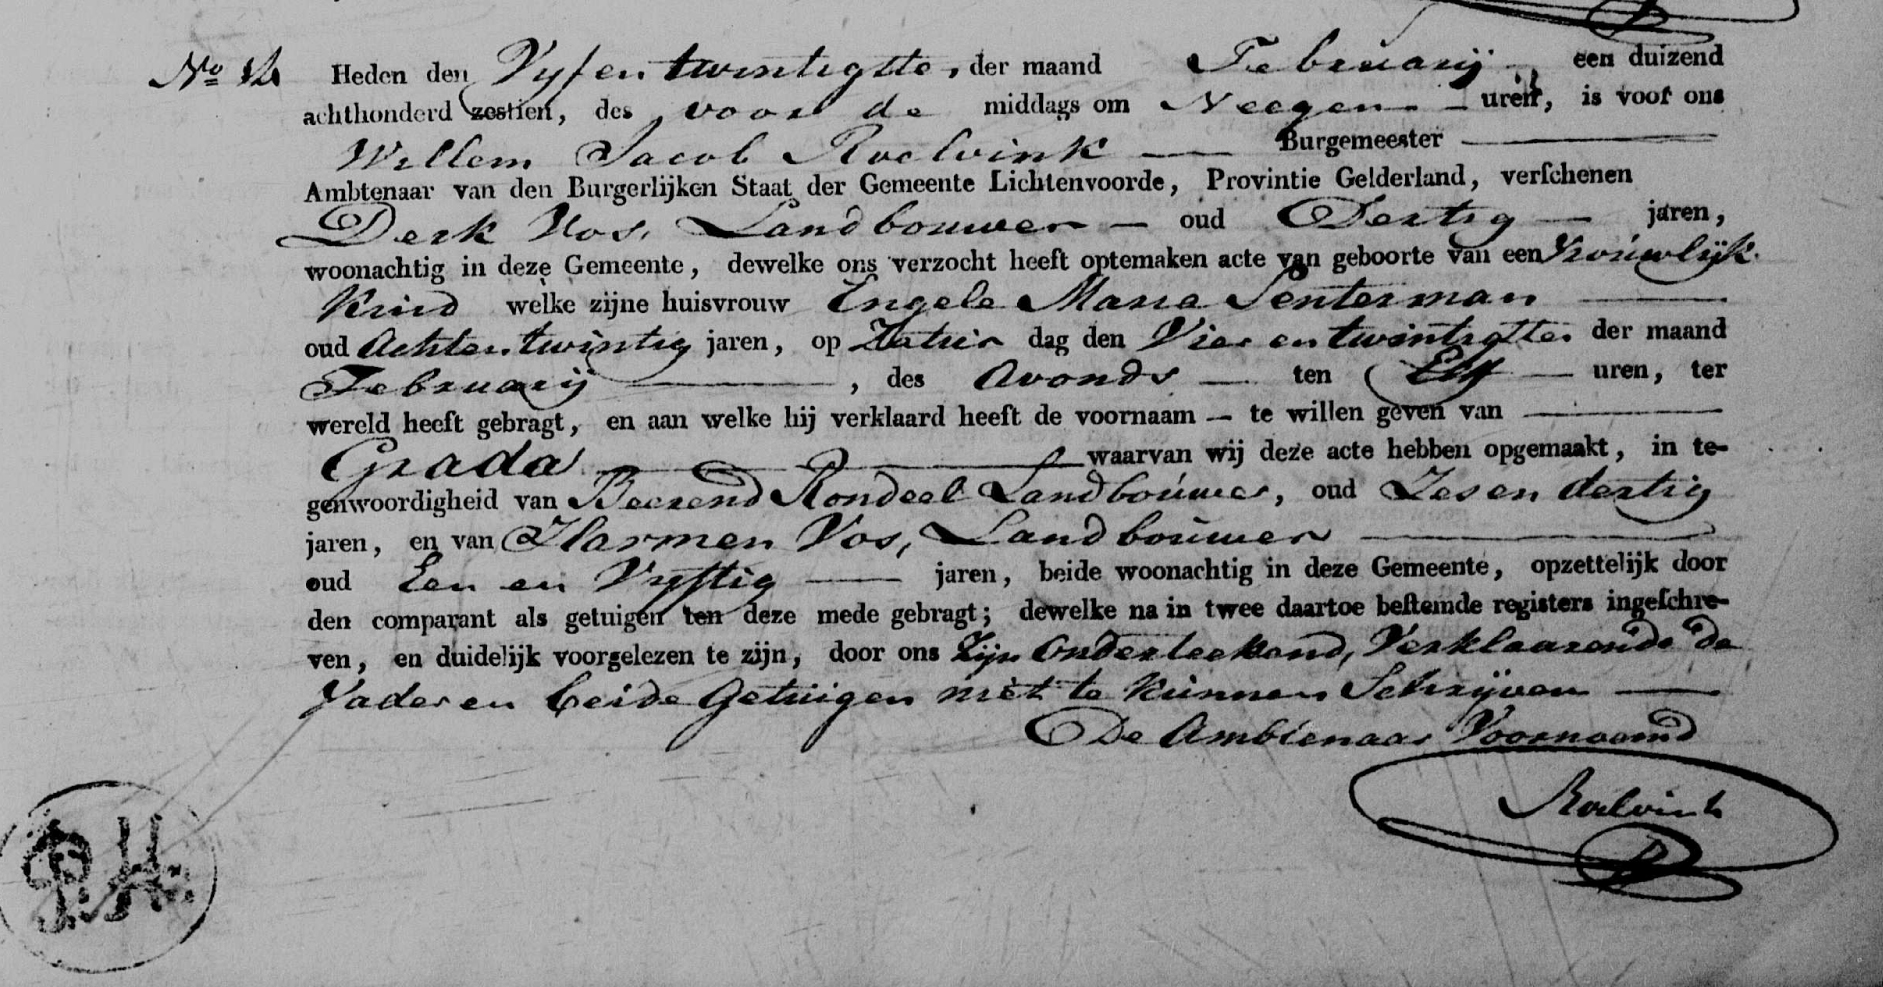 No 12 Heden den Vyfentwintigtte, der maand Februarij een duizend
achthonderd zestien, des voor de middags om Neegen uren, is voor ons
Willem Jacob Roelvink Burgemeester
Ambtenaar van den Burgerlijken Staat der Gemeente Lichtenvoorde, Provintie Gelderland, verſchenen
Derk Vos, Landbouwer oud Dertig jaren,
woonachtig in deze Gemeente, dewelke ons verzocht heeft optemaken acte van geboorte van een Vrouwlijk
Kind welke zijne huisvrouw Engele Maria Senterman
oud Achtentwintig jaren, op Zatur dag den Vierentwintigtte der maand
Februarij, des Avonds ten Elf uren, ter
wereld heeft gebragt, en aan welke hij verklaard heeft de voornaam — te willen geven van
Grada waarvan wij deze acte hebben opgemaakt, in te-
genwoordigheid van Beerend Rondeel Landbouwer, oud Zesendertig
jaren, en van Harmen Vos, Landbouwer
oud Een en Vyftig jaren, beide woonachtig in deze Gemeente, opzettelijk door
den comparant als getuigen ten deze mede gebragt; dewelke na in twee daartoe beſtemde registers ingeſchre-
ven, en duidelijk voorgelezen te zijn, door ons Zijn Onderteekend, Verklaarende de
Vader en beide Getuigen niet te kunnen Schrijven
De Ambtenaar Voornoemd
Roelvink